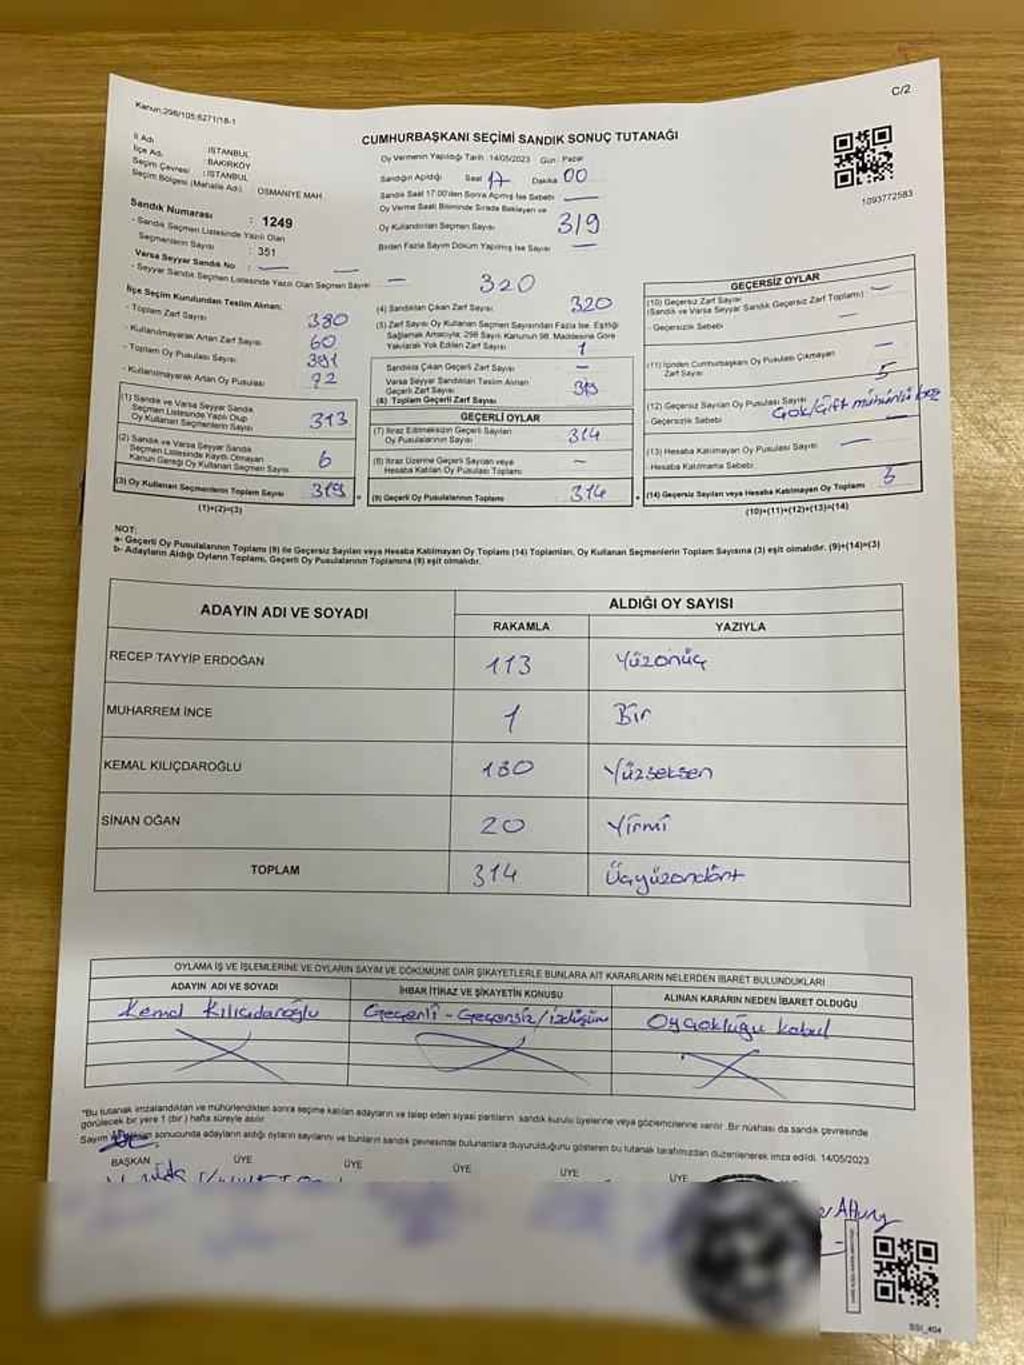 C/2
Kanun:298/105;6271/18-1
CUMHURBAŞKANI SEÇİMİ SANDIK SONUÇ TUTANAĞI
1093772583
İl Adı : İSTANBUL
İlçe Adı : BAKIRKÖY
Seçim Çevresi : İSTANBUL
Seçim Bölgesi (Mahalle Adı) : OSMANİYE MAH.
Sandık Numarası : 1249
- Sandık Seçmen Listesinde Yazılı Olan
Seçmenlerin Sayısı : 351
Varsa Seyyar Sandık No : —
- Seyyar Sandık Seçmen Listesinde Yazılı Olan Seçmen Sayısı : —
Oy Vermenin Yapıldığı Tarih : 14/05/2023 Gün : Pazar
Sandığın Açıldığı Saat Dakika 00
Sandık Saat 17:00'den Sonra Açılmış İse Sebebi —
Oy Verme Saati Bitiminde Sırada Bekleyen ve
Oy Kullandırılan Seçmen Sayısı 319
Birden Fazla Sayım Döküm Yapılmış İse Sayısı —
320
İlçe Seçim Kurulundan Teslim Alınan:
- Toplam Zarf Sayısı 380
- Kullanılmayarak Artan Zarf Sayısı 60
- Toplam Oy Pusulası Sayısı 391
- Kullanılmayarak Artan Oy Pusulası 72
(1) Sandık ve Varsa Seyyar Sandık
Seçmen Listesinde Yazılı Olup
Oy Kullanan Seçmenlerin Sayısı 313
(2) Sandık ve Varsa Seyyar Sandık
Seçmen Listesinde Kayıtlı Olmayan
Kanun Gereği Oy Kullanan Seçmen Sayısı 6
(3) Oy Kullanan Seçmenlerin Toplam Sayısı 319
(1)+(2)=(3)
(4) Sandıktan Çıkan Zarf Sayısı 320
(5) Zarf Sayısı Oy Kullanan Seçmen Sayısından Fazla İse, Eşitliği
Sağlamak Amacıyla; 298 Sayılı Kanunun 98. Maddesine Göre
Yakılarak Yok Edilen Zarf Sayısı 1
Sandıkta Çıkan Geçerli Zarf Sayısı —
Varsa Seyyar Sandıktan Teslim Alınan
Geçerli Zarf Sayısı 319
(6) Toplam Geçerli Zarf Sayısı
GEÇERLİ OYLAR
(7) İtiraz Edilmeksizin Geçerli Sayılan
Oy Pusulalarının Sayısı 314
(8) İtiraz Üzerine Geçerli Sayılan veya
Hesaba Katılan Oy Pusulası Toplamı —
(9) Geçerli Oy Pusulalarının Toplamı 314
GEÇERSİZ OYLAR
(10) Geçersiz Zarf Sayısı —
(Sandık ve Varsa Seyyar Sandık Geçersiz Zarf Toplamı)
- Geçersizlik Sebebi —
(11) İçinden Cumhurbaşkanı Oy Pusulası Çıkmayan —
Zarf Sayısı
(12) Geçersiz Sayılan Oy Pusulası Sayısı 5
- Geçersizlik Sebebi Çok/Çift mühürlü
(13) Hesaba Katılmayan Oy Pusulası Sayısı —
Hesaba Katılmama Sebebi
(14) Geçersiz Sayılan veya Hesaba Katılmayan Oy Toplamı 5
(10)+(11)+(12)+(13)=(14)
NOT:
a- Geçerli Oy Pusulalarının Toplamı (9) ile Geçersiz Sayılan veya Hesaba Katılmayan Oy Toplamı (14) Toplamları, Oy Kullanan Seçmenlerin Toplam Sayısına (3) eşit olmalıdır. (9)+(14)=(3)
b- Adayların Aldığı Oyların Toplamı, Geçerli Oy Pusulalarının Toplamına (9) eşit olmalıdır.
ADAYIN ADI VE SOYADI ALDIĞI OY SAYISI
RAKAMLA YAZIYLA
RECEP TAYYİP ERDOĞAN 113 Yüzonüç
MUHARREM İNCE 1 Bir
KEMAL KILIÇDAROĞLU 180 Yüzseksen
SİNAN OĞAN 20 Yirmi
TOPLAM 314 Üçyüzondört
OYLAMA İŞ VE İŞLEMLERİNE VE OYLARIN SAYIM VE DÖKÜMÜNE DAİR ŞİKAYETLERLE BUNLARA AİT KARARLARIN NELERDEN İBARET BULUNDUKLARI
ADAYIN ADI VE SOYADI İHBAR İTİRAZ VE ŞİKAYETİN KONUSU ALINAN KARARIN NEDEN İBARET OLDUĞU
Kemal Kılıçdaroğlu Geçerli-Geçersiz/izdüşüm Oyçokluğu kabul
"Bu tutanak imzalandıktan ve mühürlendikten sonra seçime katılan adayların ve talep eden siyasi partilerin sandık kurulu üyelerine veya gözlemcilerine verilir. Bir nüshası da sandık çevresinde
görülecek bir yere 1 (bir) hafta süreyle asılır.
Sayım sonucunda adayların aldığı oyların sayılarını ve bunların sandık çevresinde bulunanlara duyurulduğunu gösteren bu tutanak tarafımızdan düzenlenerek imza edildi. 14/05/2023
BAŞKAN ÜYE ÜYE ÜYE ÜYE ÜYE
SSI_404